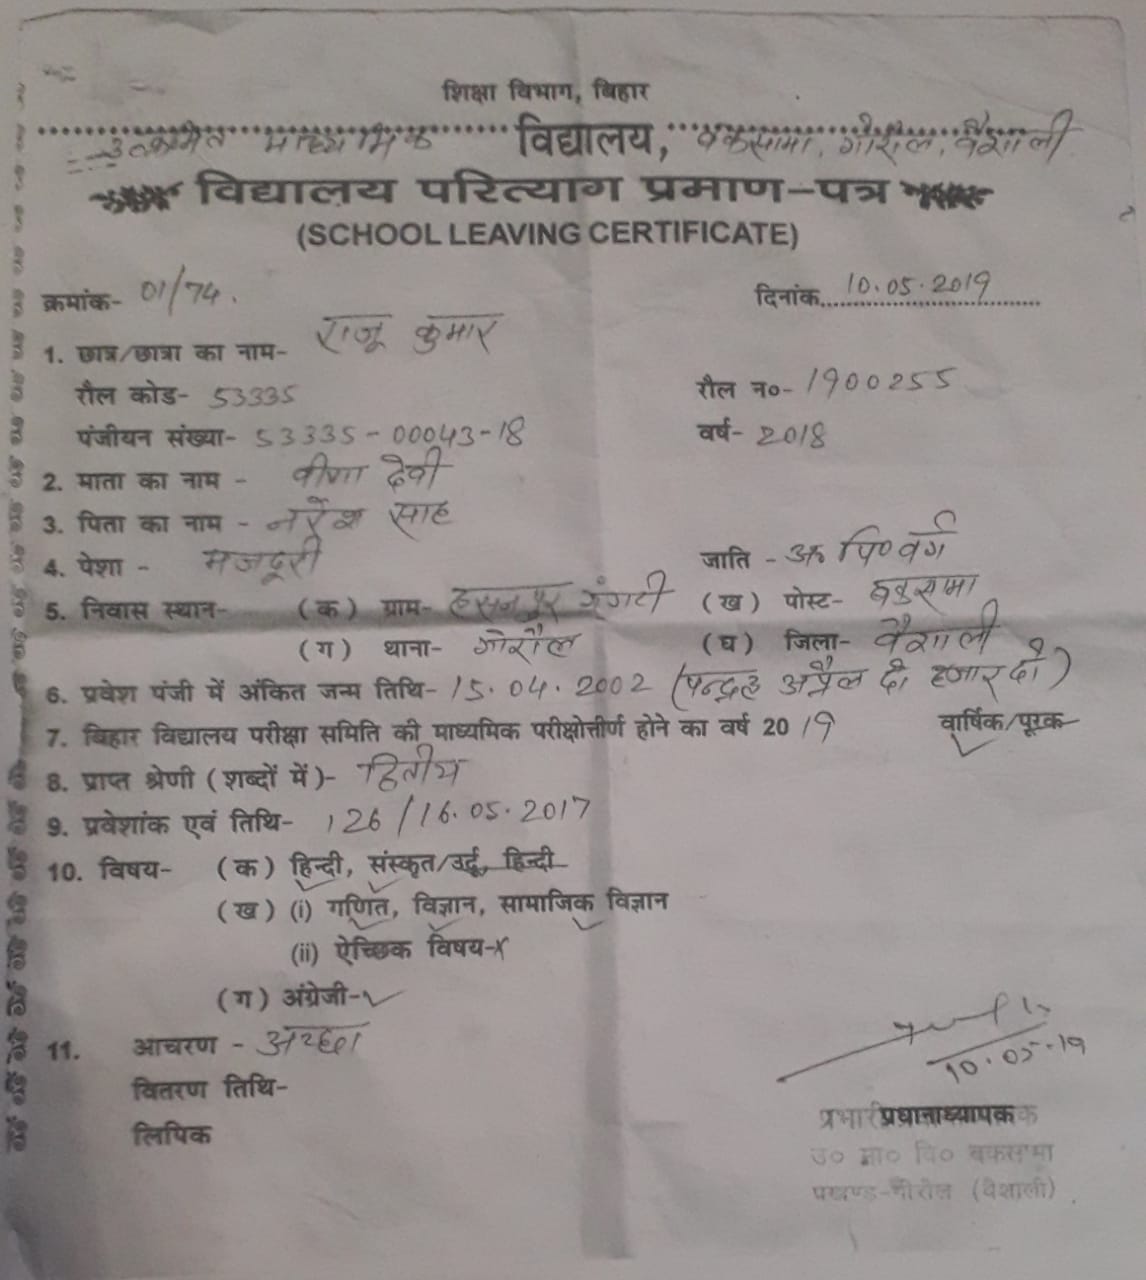 शिक्षा विभाग, बिहार
उत्क्रमित माध्यमिक विद्यालय, बकसामा, गोरौल, वैशाली
विद्यालय परित्याग प्रमाण-पत्र
(SCHOOL LEAVING CERTIFICATE)
क्रमांक- 01/74. दिनांक 10.05.2019
1. छात्र/छात्रा का नाम- राजू कुमार
रौल कोड- 53335 रौल न०- 1900255
पंजीयन संख्या- 53335-00043-18 वर्ष- 2018
2. माता का नाम - वीणा देवी
3. पिता का नाम - नरेश साह
4. पेशा - मजदूरी जाति - अ० पि० वर्ग
5. निवास स्थान- (क) ग्राम- हसनपुर गंगटी (ख) पोस्ट- बकुसामा
(ग) थाना- गोरौल (घ) जिला- वैशाली
6. प्रवेश पंजी में अंकित जन्म तिथि- 15.04.2002 (पन्द्रह अप्रैल दो हजार दो)
7. बिहार विद्यालय परीक्षा समिति की माध्यमिक परीक्षोत्तीर्ण होने का वर्ष 2019 वार्षिक/पूरक
8. प्राप्त श्रेणी (शब्दों में)- द्वितीय
9. प्रवेशांक एवं तिथि- 126/16.05.2017
10. विषय- (क) हिन्दी, संस्कृत/उर्दू, हिन्दी
(ख) (i) गणित, विज्ञान, सामाजिक विज्ञान
(ii) ऐच्छिक विषय-x
(ग) अंग्रेजी-✓
11. आचरण - अच्छा
वितरण तिथि-
लिपिक
10.05.19
प्रभारी प्रधानाध्यापक
उ० मा० वि० बकसामा
प्रखण्ड-गोरौल (वैशाली)